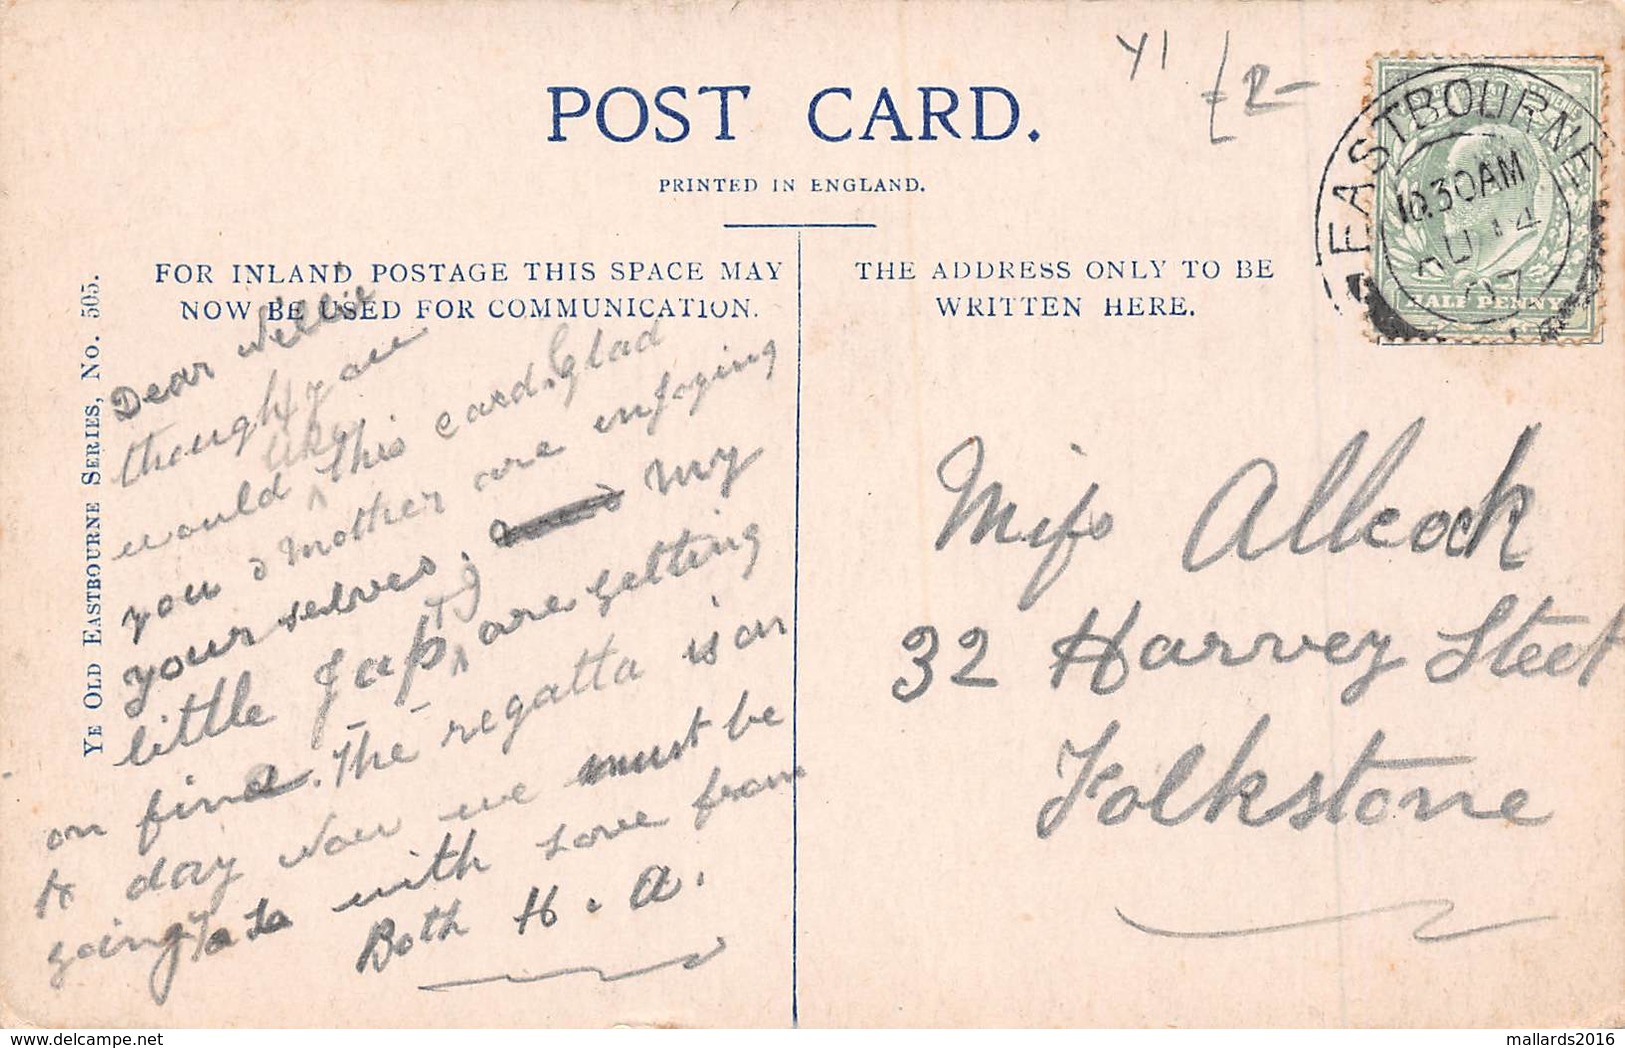 Y1 £2-
POST CARD.
PRINTED IN ENGLAND.
FOR INLAND POSTAGE THIS SPACE MAY
NOW BE USED FOR COMMUNICATION.
THE ADDRESS ONLY TO BE
WRITTEN HERE.
YE OLD EASTBOURNE SERIES, NO. 505.
EASTBOURNE
10.30AM
AU 14
07
HALF PENNY
Dear Nellie
thought you
would like this card. Glad
you & mother are enjoying
your selves, my
little Jap are getting
on fine. The regatta is on
to day Now we must be
going Ta Ta with love from
Both H. A.
Miss Allcock
32 Harvey Steet
Folkstone
mallards2016